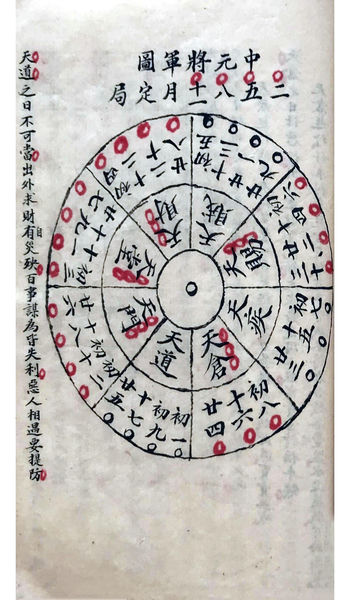 中元將軍圖
二五八十一月定局
天道
初一
初九
十七
廿五
天門
初二
初十
十八
廿六
天堂
初三
十一
十九
廿七
天財
初四
十二
二十
廿八
天賊
初五
十三
廿一
廿九
天賜
初六
十四
廿二
三十
天
初七
十五
廿三
天倉
初八
十六
廿四
天道之日不可當出外求財有自災殃百事謀為皆失利惡人相遇要提防